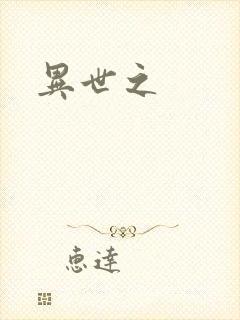 異世之
恵達